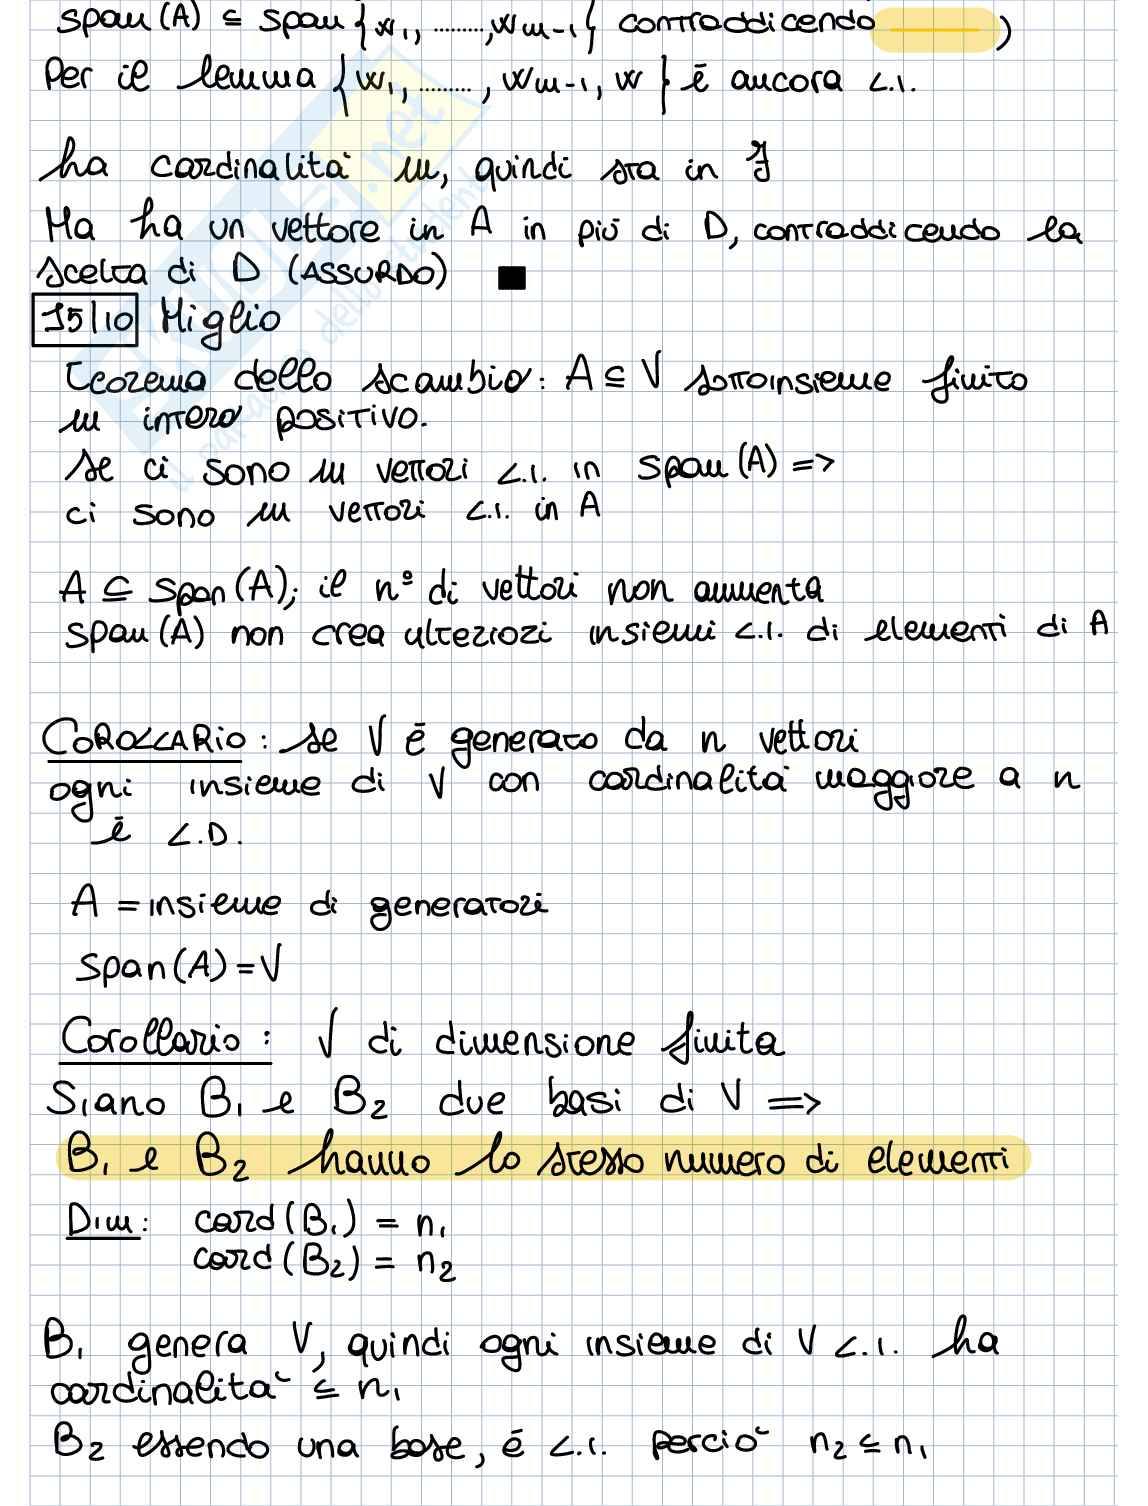 span (A) ⊆ span {w1, ........., wm-1} contraddicendo ______)
Per il lemma {w1, ........., wm-1, w} è ancora L.I.
ha cardinalità m, quindi sta in J
Ma ha un vettore in A in più di D, contraddicendo la
scelta di D (ASSURDO) ■
15/10 Miglio
Teorema dello scambio: A ⊆ V sottoinsieme finito
m intero positivo.
se ci sono m vettori L.I. in span (A) =>
ci sono m vettori L.I. in A
A ⊆ span (A); il n° di vettori non aumenta
span (A) non crea ulteriori insiemi L.I. di elementi di A
COROLLARIO: se V è generato da n vettori
ogni insieme di V con cardinalità maggiore a n
è L.D.
A = insieme di generatori
span (A) = V
Corollario: V di dimensione finita
Siano B1 e B2 due basi di V =>
B1 e B2 hanno lo stesso numero di elementi
Dim: card (B1) = n1
card (B2) = n2
B1 genera V, quindi ogni insieme di V L.I. ha
cardinalità ≤ n1
B2 essendo una base, è L.I. perciò n2 ≤ n1
SKUOLA.net
il paradiso dello studente